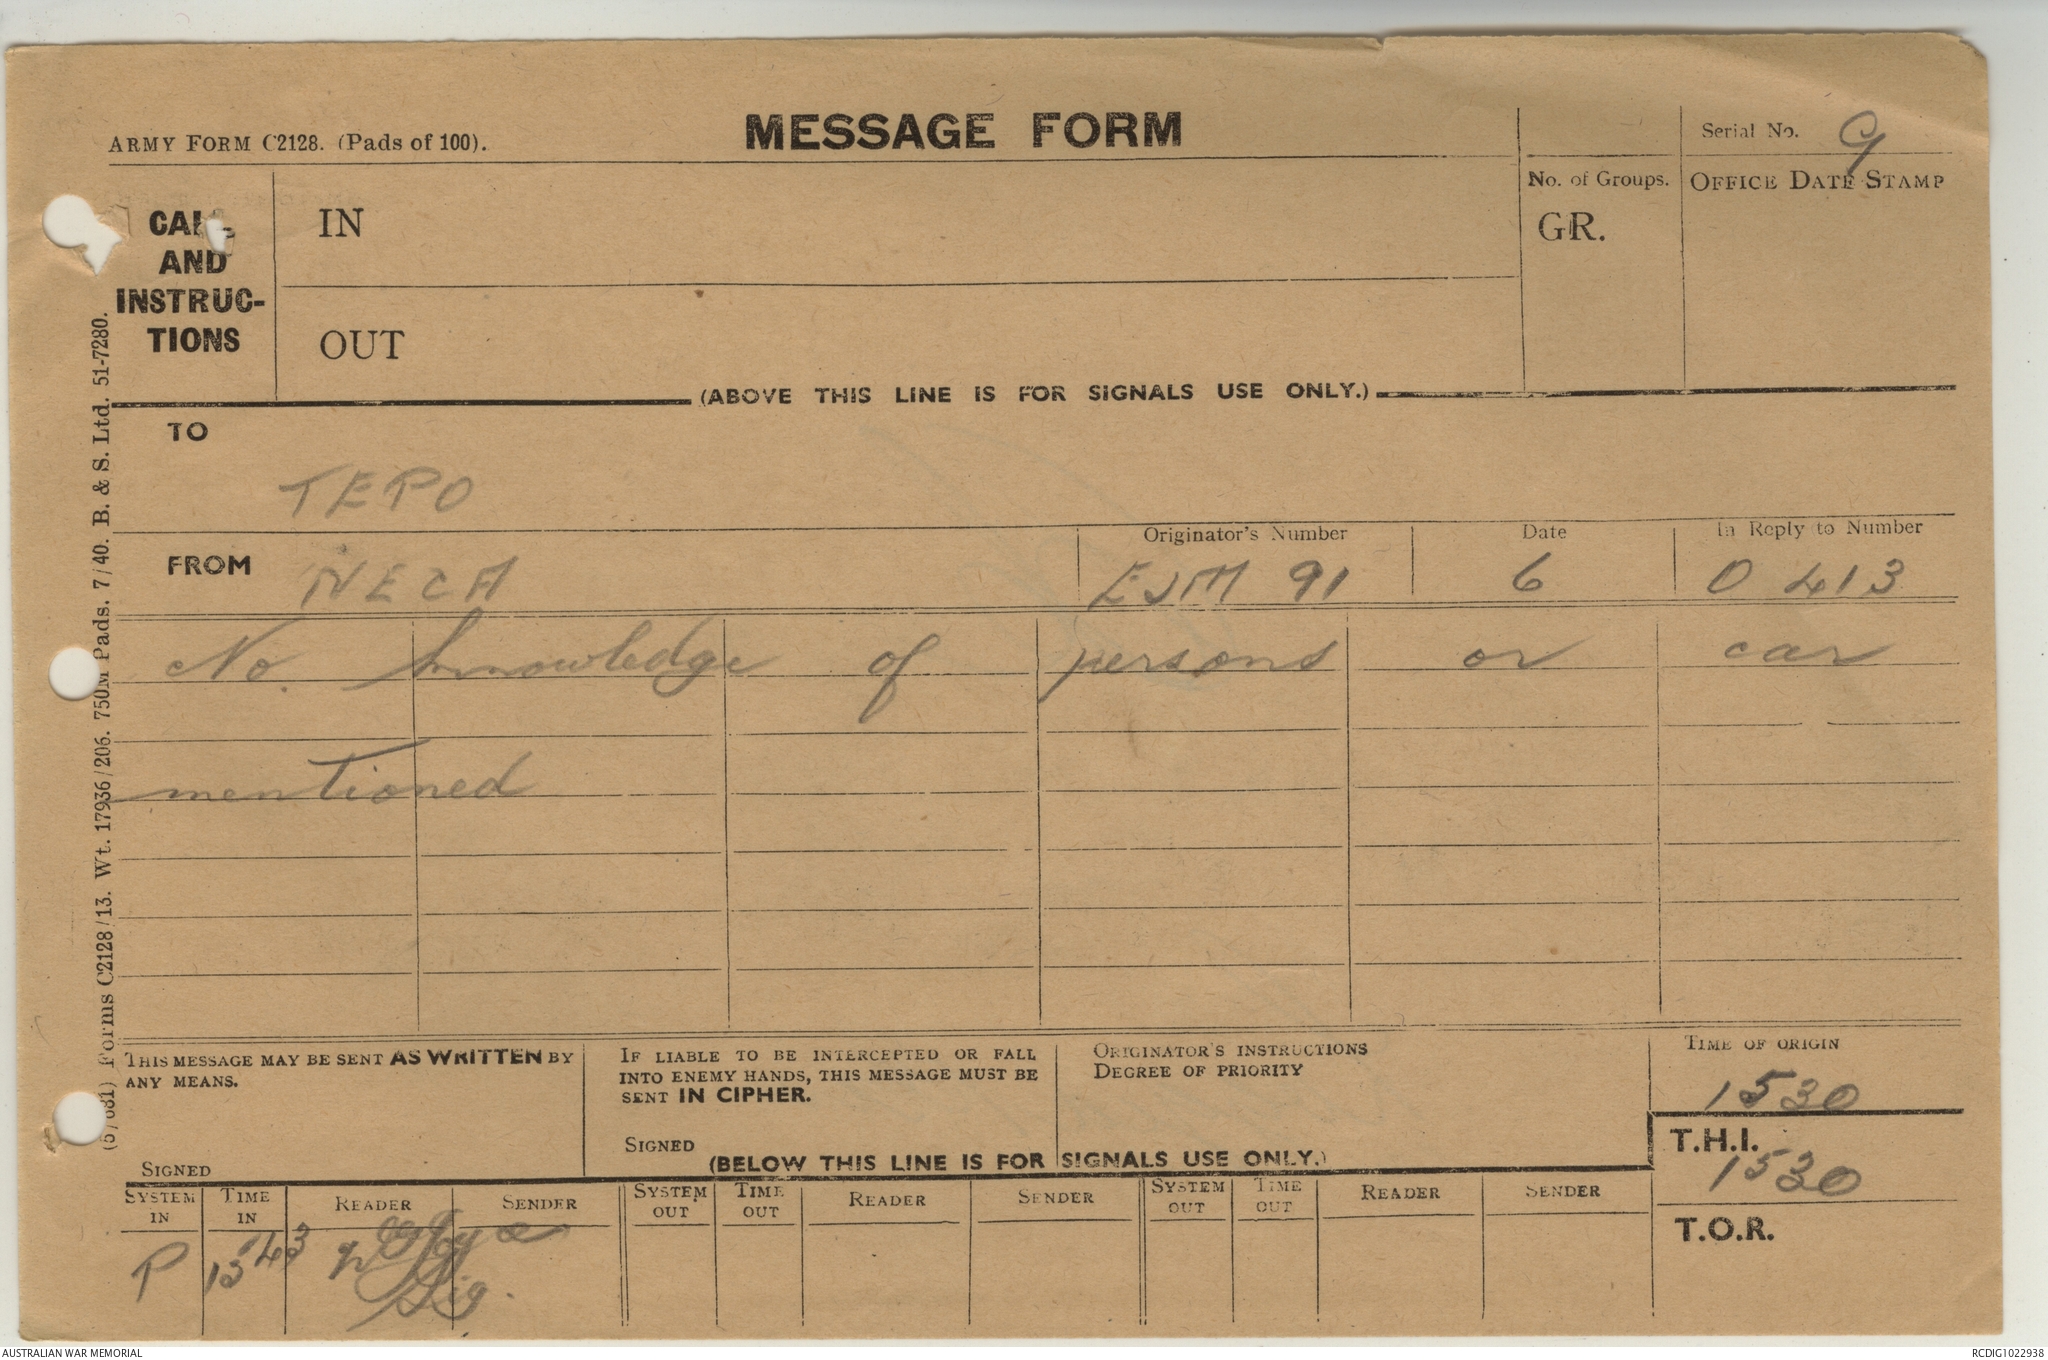 ARMY FORM C2128. (Pads of 100).
MESSAGE FORM
Serial No. 9
CALL AND INSTRUC-TIONS
IN
OUT
No. of Groups.
GR.
OFFICE DATE STAMP
(ABOVE THIS LINE IS FOR SIGNALS USE ONLY.)
TO
TEPO
FROM
NECA
Originator's Number
EJM 91
Date
6
In Reply to Number
O 413
No knowledge of persons or car
mentioned
THIS MESSAGE MAY BE SENT AS WRITTEN BY
ANY MEANS.
SIGNED
IF LIABLE TO BE INTERCEPTED OR FALL
INTO ENEMY HANDS, THIS MESSAGE MUST BE
SENT IN CIPHER.
SIGNED
ORIGINATOR'S INSTRUCTIONS
DEGREE OF PRIORITY
TIME OF ORIGIN
1530
T.H.I.
1530
T.O.R.
(BELOW THIS LINE IS FOR SIGNALS USE ONLY.)
SYSTEM IN
TIME IN
READER
SENDER
SYSTEM OUT
TIME OUT
READER
SENDER
SYSTEM OUT
TIME OUT
READER
SENDER
P
1543
Sig.
Forms C2128/13. Wt. 17936/206. 750M Pads. 7/40. B. & S. Ltd. 51-7280.
AUSTRALIAN WAR MEMORIAL
RCDIG1022938